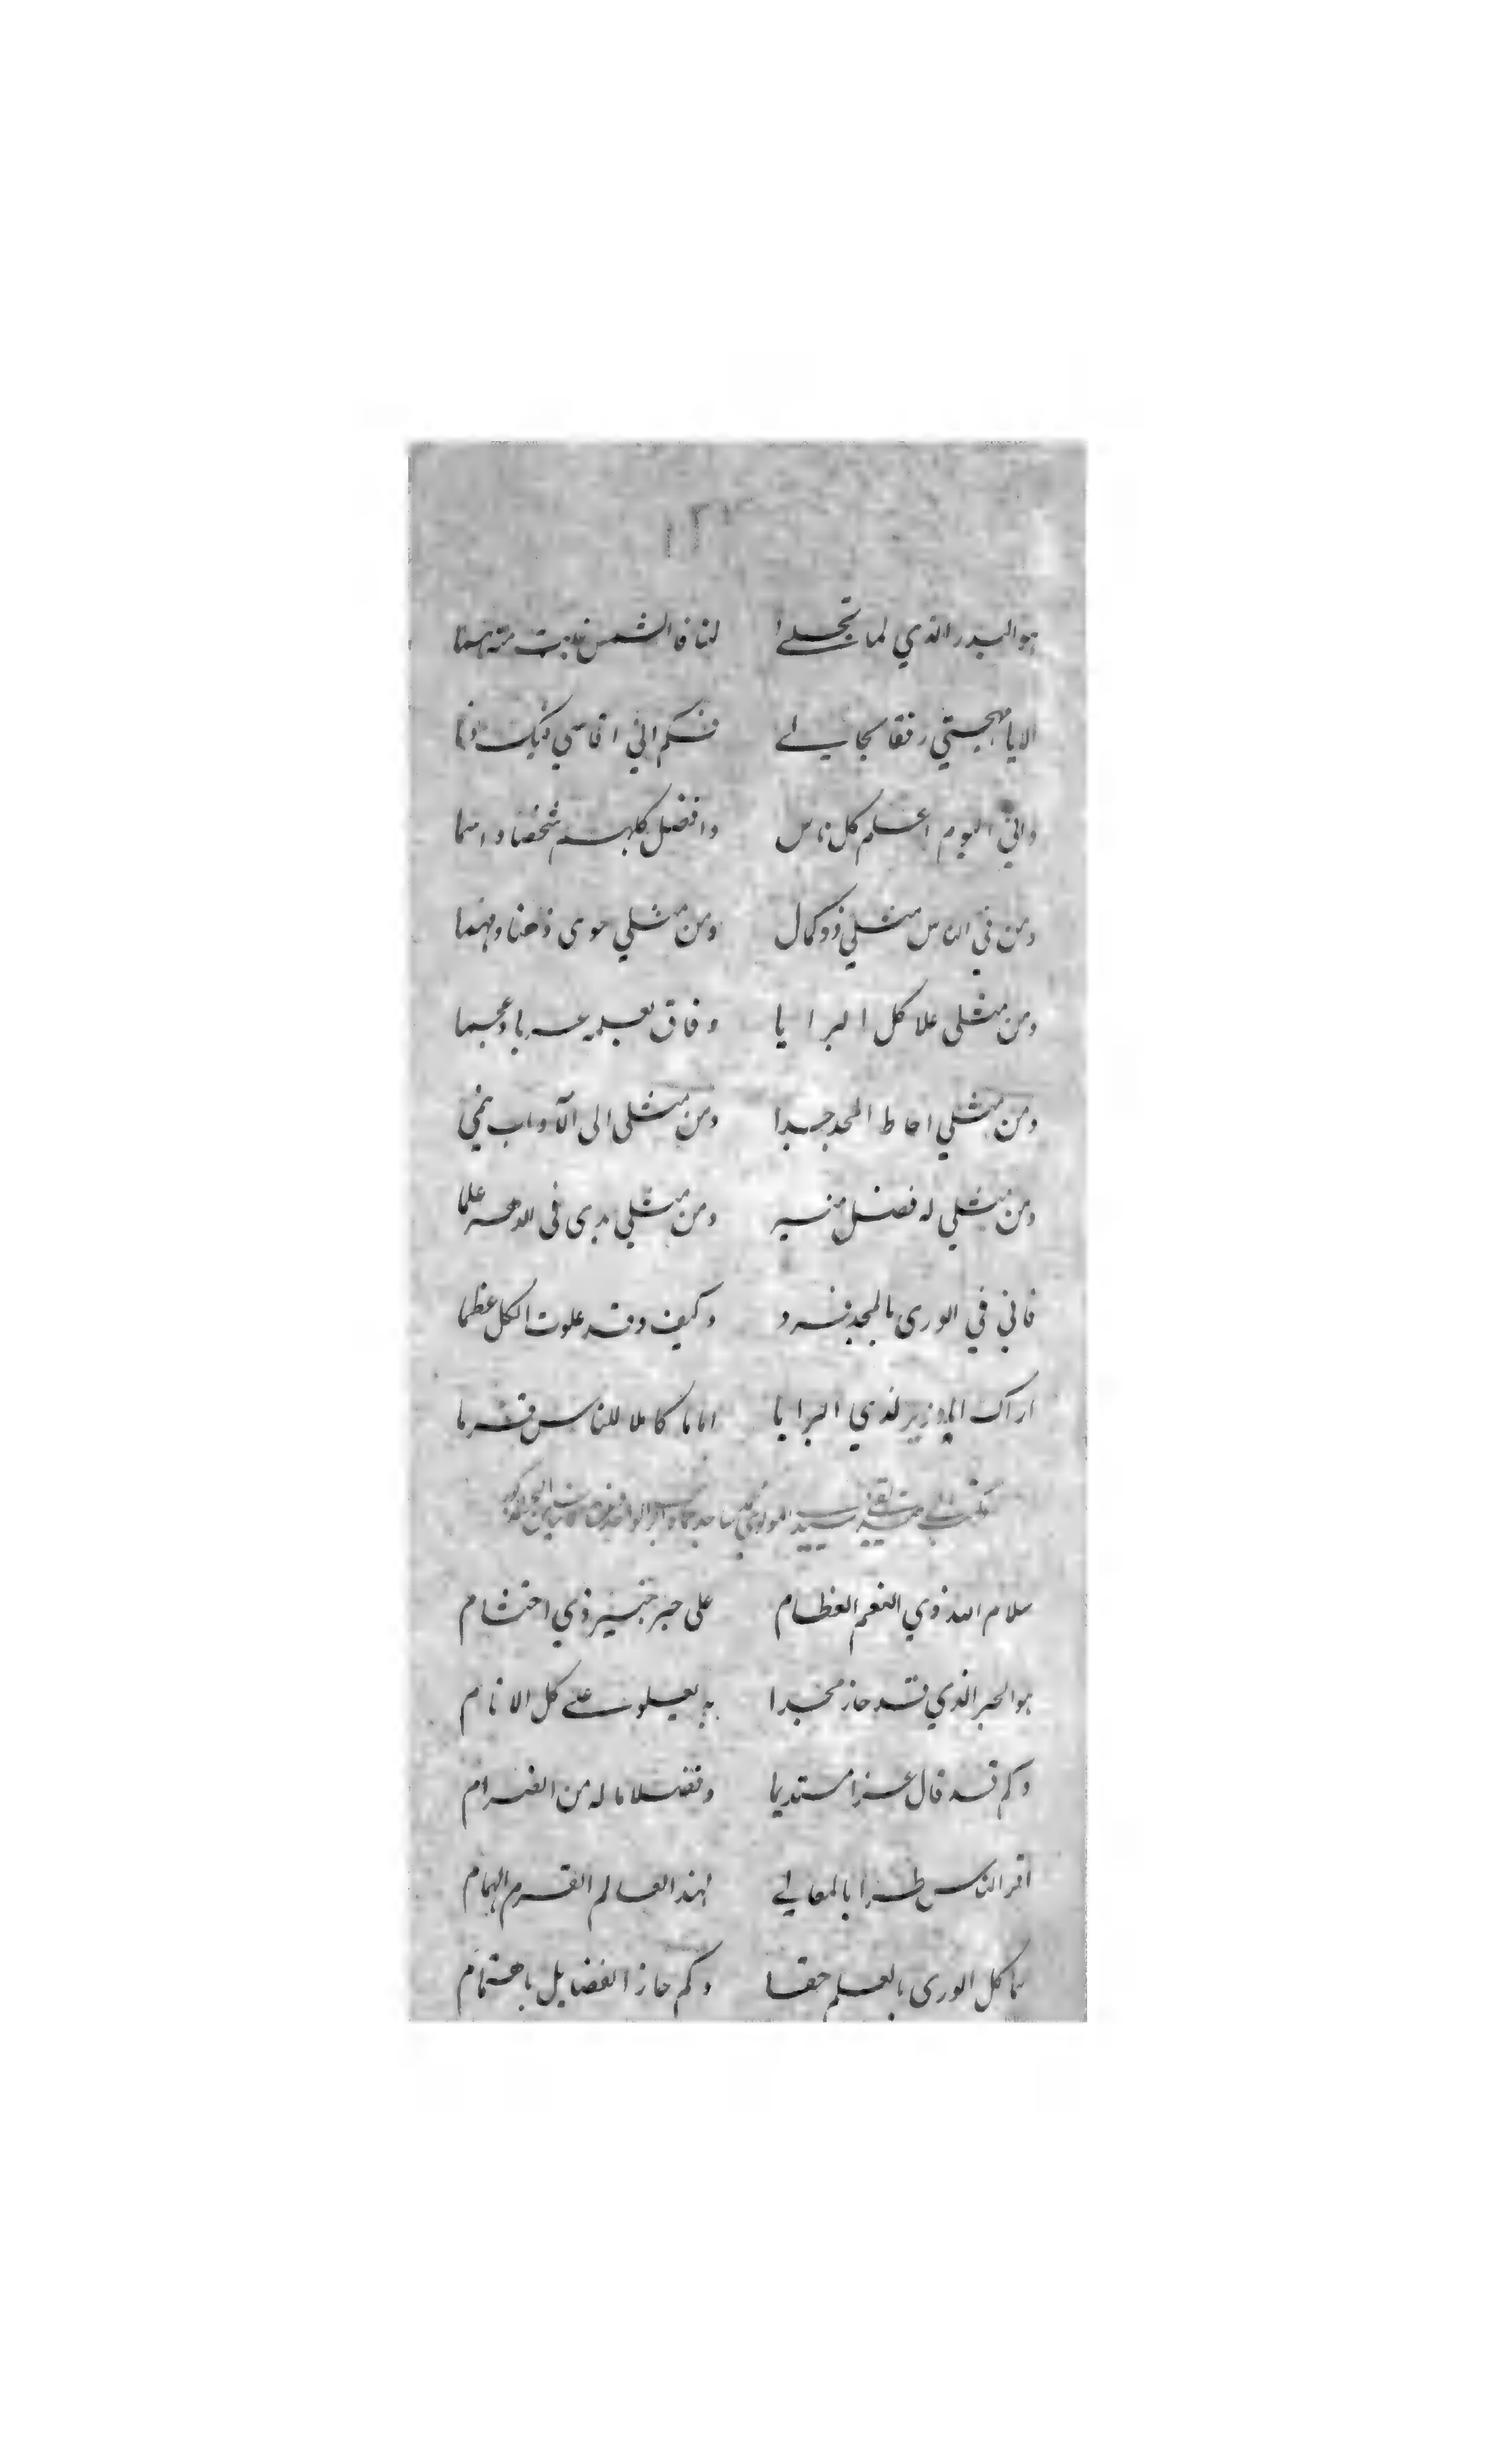 هو البدر الذي لما تجلا لنا فالشمس غابت منه
الا يا مهجتي رفقا بحالي فكم اني اقاسي فيك
واني اليوم اعلم كل ناس وافضل كلهم شخصا واسما
ومن في الناس مثلي ذو كمال ومن مثلي حوى ذهنا وفهما
ومن مثلي علا كل البرايا وفاق بعربه عربا وعجما
ومن مثلي احاط المجد جدا ومن مثلي الى الآداب ينمي
ومن مثلي له فضل منير ومن مثلي بدى في الدهر علما
فاني في الورى بالمجد فرد وكيف وقد علوت الكل عظما
اراك الوزير لذي البرايا اماما كاملا للناس قرما
سلام الله ذي النعم العظام على حبر خبير ذي احتشام
هو الحبر الذي قد حاز مجدا به يعلو على كل الانام
وكم قد قال عزا مستديما وفضلا ماله من انصرام
اقر الناس طرا بالمعالي لهذا العالم القرم الهمام
سما كل الورى بالعلم حقا وكم حاز الفضايل باهتمام